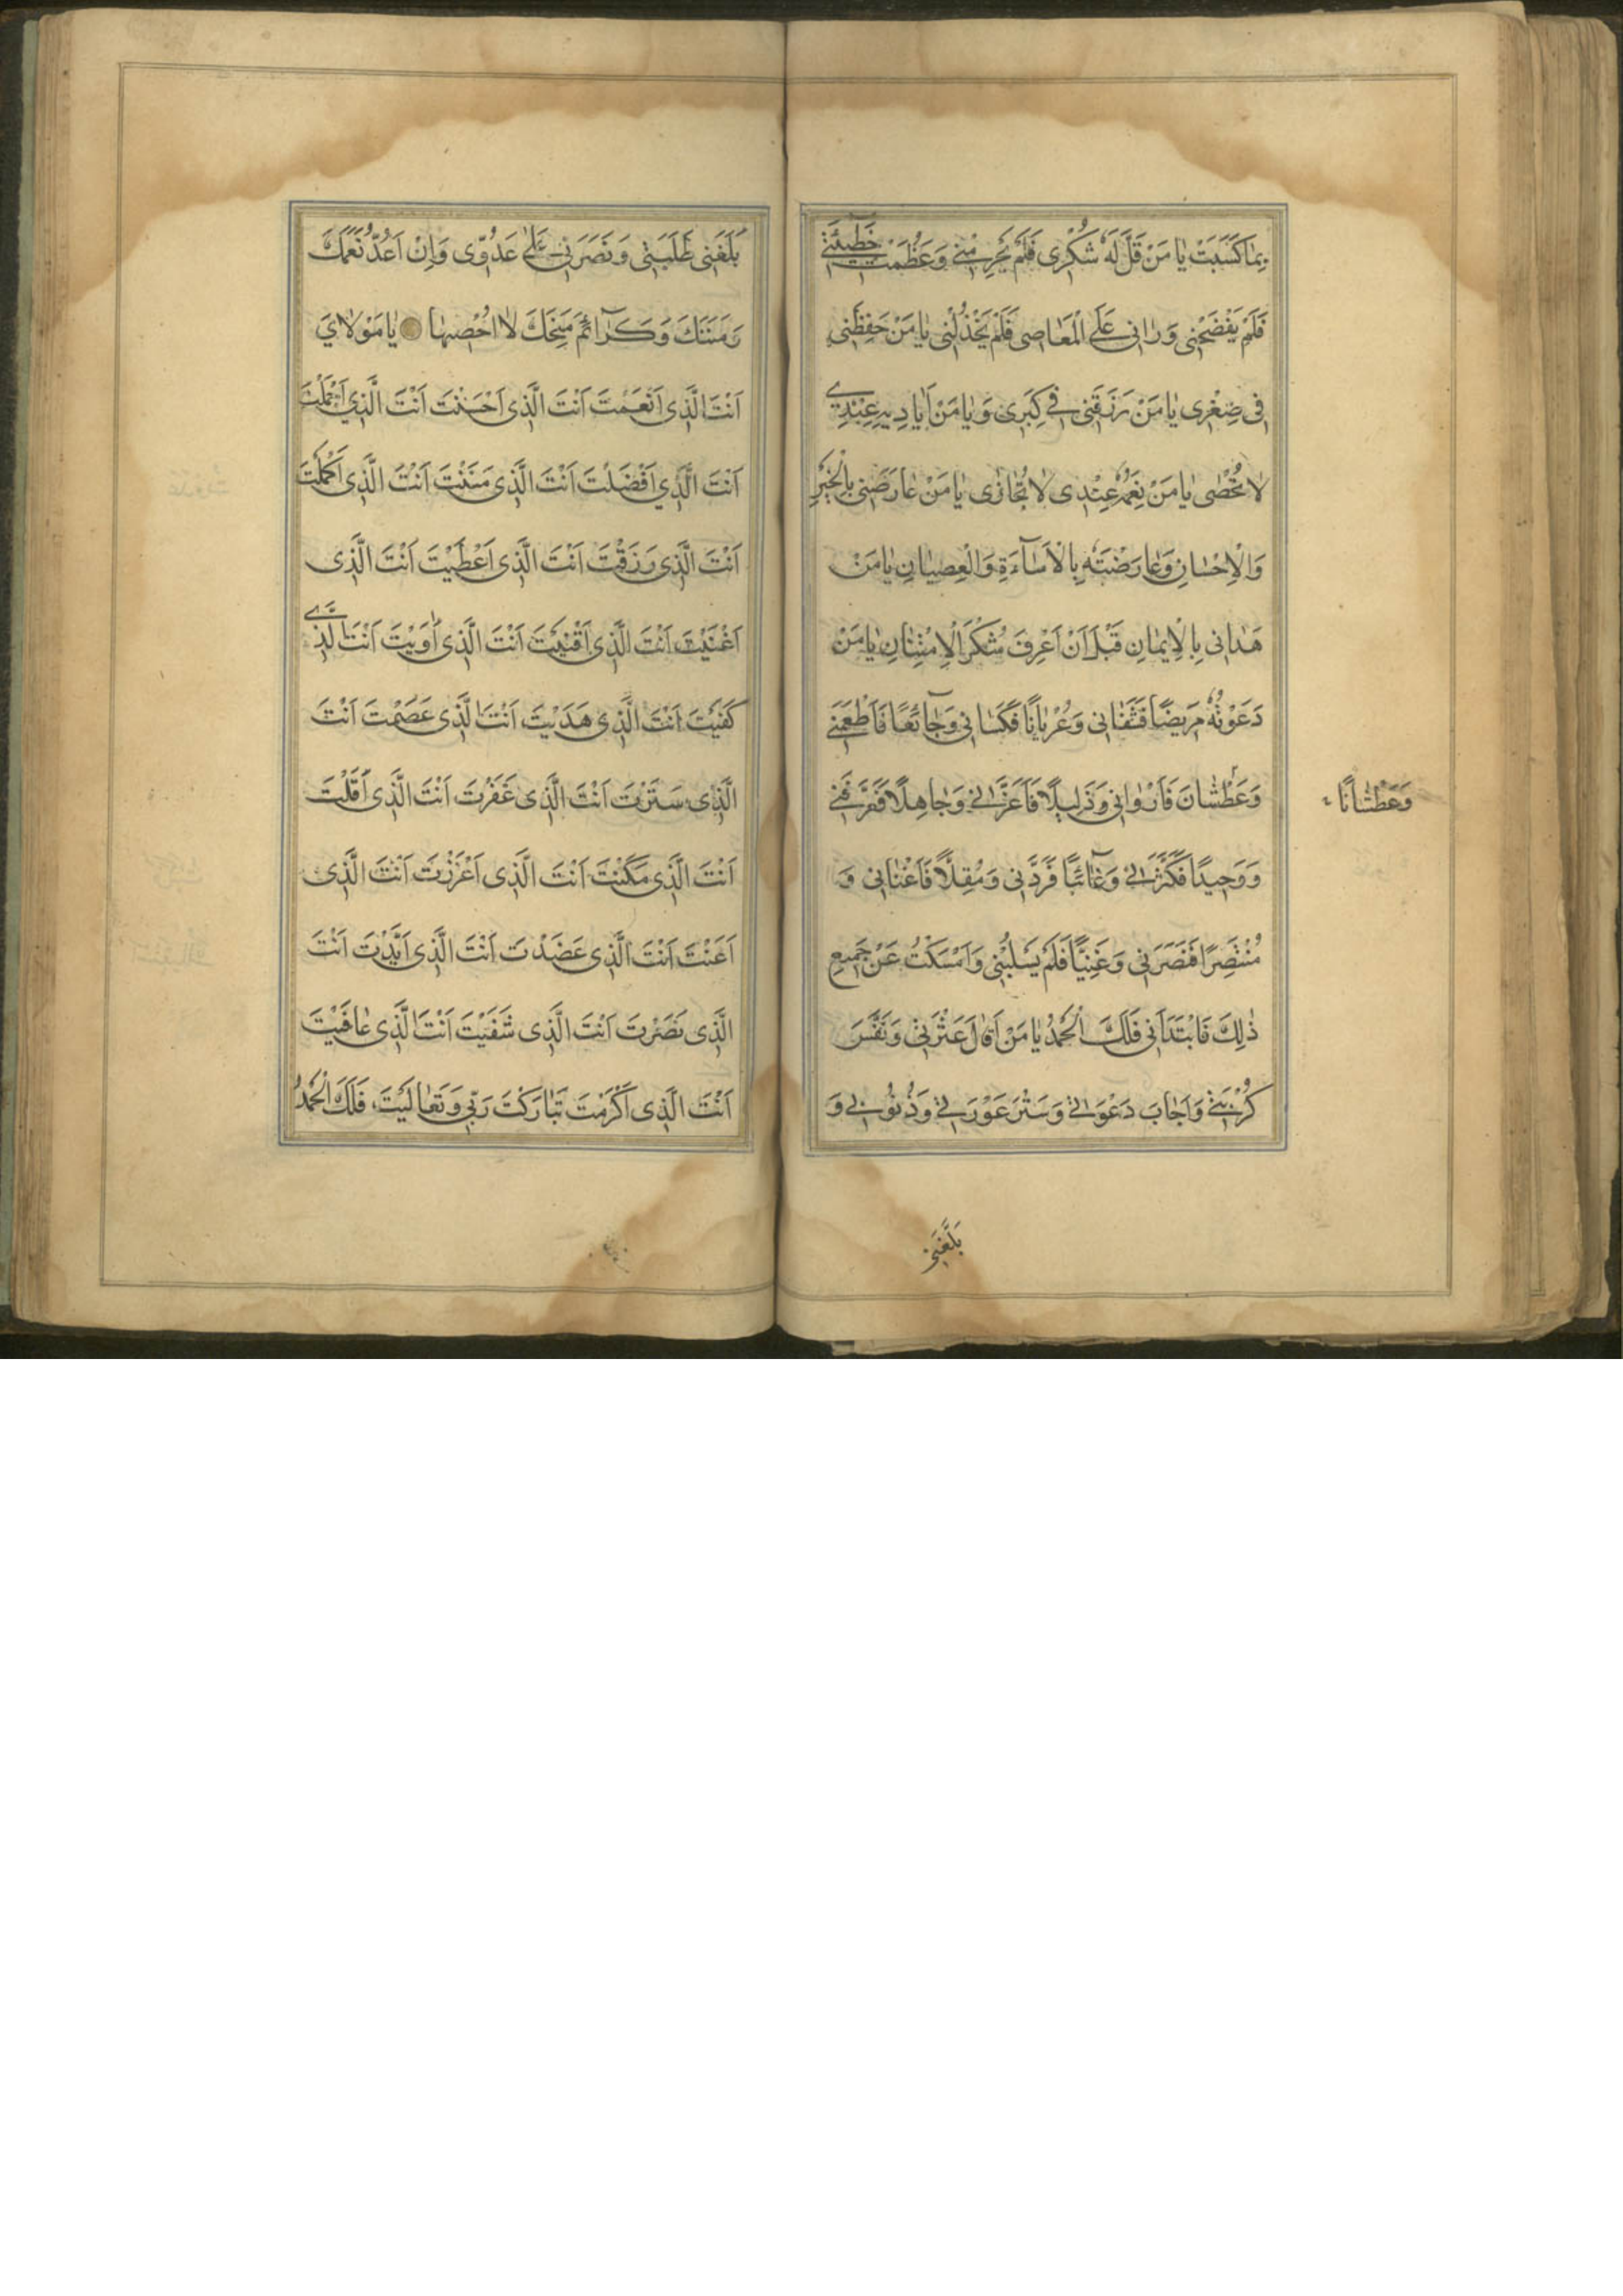 بِمٰا كَسَبَتْ يٰا مَنْ قَلَّ لَهُ شُكْرِى فَلَمْ يَحْرِمْنِى وَعَظُمَتْ خَطٖيئَتِى
فَلَمْ يَفْضَحْنِى وَرَاٰنِى عَلَى الْمَعٰاصِى فَلَمْ يَخْذُلْنِى يٰا مَنْ حَفِظَنِى
فِى صِغْرِى يٰا مَنْ رَزَقَنِى فِى كِبَرِى وَيٰا مَنْ اَيٰادِيهِ عِنْدِى
لاٰ تُحْصٰى يٰا مَنْ نِعَمُهُ عِنْدِى لاٰ تُجٰازٰى يٰا مَنْ عٰارَضَنِى بِالْخَيْرِ
وَالْاِحْسٰانِ وَعٰارَضْتَهُ بِالْاَسٰآءَةِ وَالْعِصْيٰانِ يٰا مَنْ
هَدٰانِى بِالْاِيمٰانِ قَبْلَ اَنْ اَعْرِفَ شُكْرَ الْاِمْتِنٰانِ يٰا مَنْ
دَعَوْتُهُ مَرِيضًا فَشَفٰانِى وَعُرْيٰانًا فَكَسٰانِى وَجٰآئِعًا فَاَطْعَمَنِى
وَعَطْشٰانَ فَاَرْوٰانِى وَذَلِيلًا فَاَعَزَّنِى وَجٰاهِلًا فَعَرَّفَنِى
وَعَطْشٰانًا
وَوَحِيدًا فَكَثَّرَنِى وَغٰآئِبًا فَرَدَّنِى وَمُقِلًّا فَاَغْنٰانِى وَ
مُنْتَصِرًا فَنَصَرَنِى وَغَنِيًّا فَلَمْ يَسْلُبْنِى وَاَمْسَكْتُ عَنْ جَمِيعِ
ذٰلِكَ فَابْتَدَاَنِى فَلَكَ الْحَمْدُ يٰا مَنْ اَقٰالَ عَثْرَتِى وَنَفَّسَ
كُرْبَتِى وَاَجٰابَ دَعْوَتِى وَسَتَرَ عَوْرَتِى وَذُنُوبِى وَ
بَلَّغَنِى
بَلَّغَنِى طَلِبَتِى وَنَصَرَنِى عَلٰى عَدُوِّى وَاِنْ اَعُدَّ نِعَمَكَ
وَمِنَنَكَ وَكَرٰآئِمَ مِنَحِكَ لاٰ اُحْصِيهٰا يٰا مَوْلاٰىَ
اَنْتَ الَّذِى اَنْعَمْتَ اَنْتَ الَّذِى اَحْسَنْتَ اَنْتَ الَّذِى اَجْمَلْتَ
اَنْتَ الَّذِى اَفْضَلْتَ اَنْتَ الَّذِى مَنَنْتَ اَنْتَ الَّذِى اَكْمَلْتَ
اَنْتَ الَّذِى رَزَقْتَ اَنْتَ الَّذِى اَعْطَيْتَ اَنْتَ الَّذِى
اَغْنَيْتَ اَنْتَ الَّذِى اَقْنَيْتَ اَنْتَ الَّذِى اٰوَيْتَ اَنْتَ الَّذِى
كَفَيْتَ اَنْتَ الَّذِى هَدَيْتَ اَنْتَ الَّذِى عَصَمْتَ اَنْتَ
الَّذِى سَتَرْتَ اَنْتَ الَّذِى غَفَرْتَ اَنْتَ الَّذِى اَقَلْتَ
اَنْتَ الَّذِى مَكَّنْتَ اَنْتَ الَّذِى اَعْزَزْتَ اَنْتَ الَّذِى
اَعَنْتَ اَنْتَ الَّذِى عَضَدْتَ اَنْتَ الَّذِى اَيَّدْتَ اَنْتَ
الَّذِى نَصَرْتَ اَنْتَ الَّذِى شَفَيْتَ اَنْتَ الَّذِى عٰافَيْتَ
اَنْتَ الَّذِى اَكْرَمْتَ تَبٰارَكْتَ رَبِّى وَتَعٰالَيْتَ فَلَكَ الْحَمْدُ